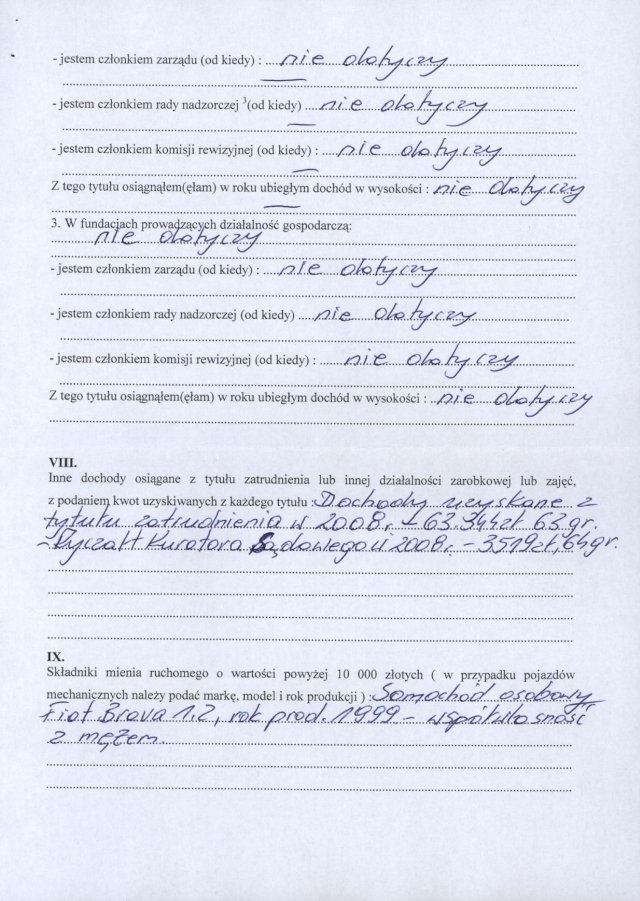 - jestem członkiem zarządu (od kiedy) : .... nie dotyczy
- jestem członkiem rady nadzorczej ³(od kiedy) ... nie dotyczy
- jestem członkiem komisji rewizyjnej (od kiedy) : .... nie dotyczy
Z tego tytułu osiągnąłem(ęłam) w roku ubiegłym dochód w wysokości : nie dotyczy
3. W fundacjach prowadzących działalność gospodarczą:
nie dotyczy
- jestem członkiem zarządu (od kiedy) : ... nie dotyczy
- jestem członkiem rady nadzorczej (od kiedy) .... nie dotyczy
- jestem członkiem komisji rewizyjnej (od kiedy) : ...... nie dotyczy
Z tego tytułu osiągnąłem(ęłam) w roku ubiegłym dochód w wysokości : .. nie dotyczy
VIII.
Inne dochody osiągane z tytułu zatrudnienia lub innej działalności zarobkowej lub zajęć,
z podaniem kwot uzyskiwanych z każdego tytułu : Dochody uzyskane z
tytułu zatrudnienia w 2008r. - 63.344zł 63 gr.
- Ryczałt Kuratora Sądowego w 2008r. - 3519zł, 64 gr.
IX.
Składniki mienia ruchomego o wartości powyżej 10 000 złotych ( w przypadku pojazdów
mechanicznych należy podać markę, model i rok produkcji ) : Samochód osobowy
Fiat Brava 1.2, rok prod. 1999 - współwłasność
z mężem.